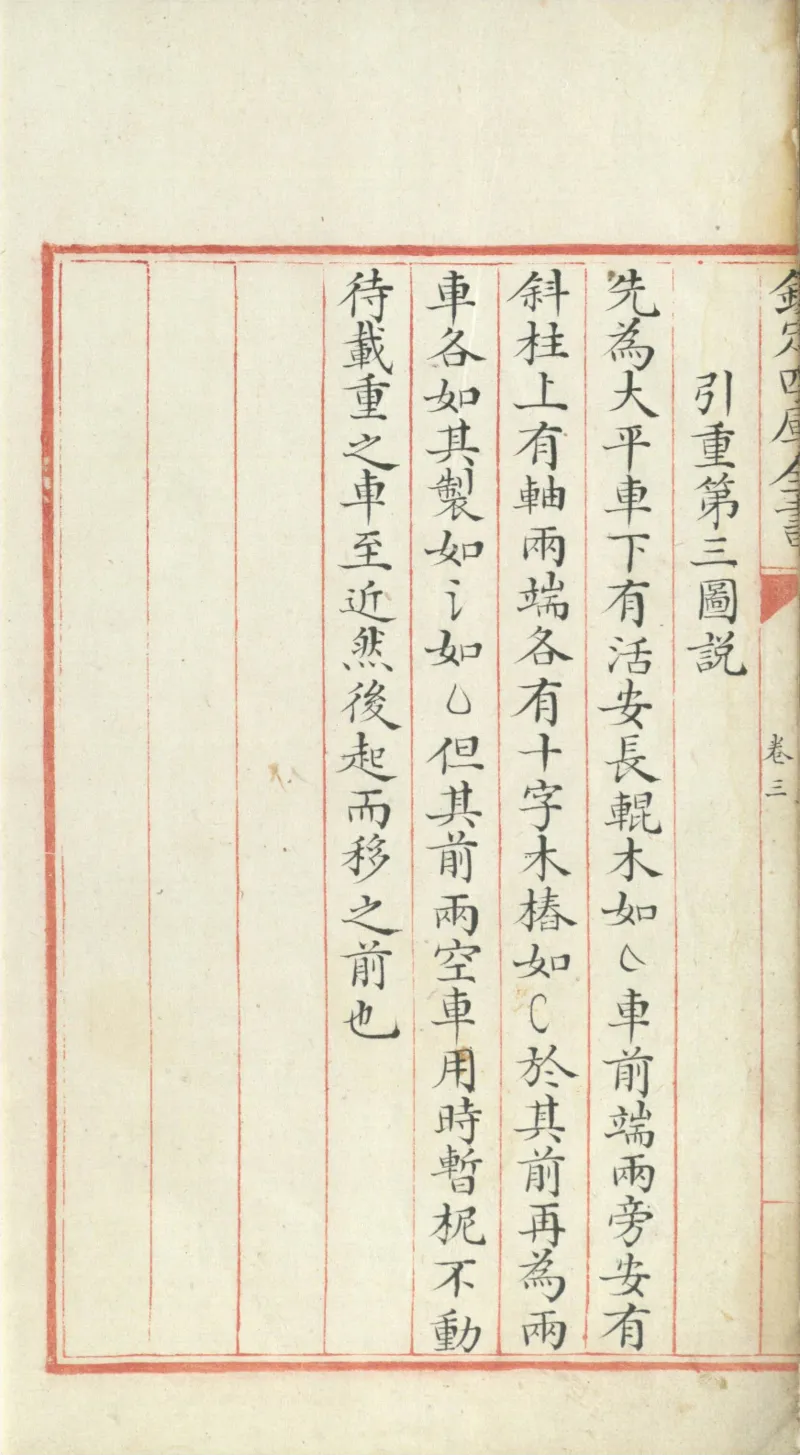 欽定四庫全書
卷三
引重第三圖説
先為大平車下有活安長輥木如車前端兩旁安有
斜柱上有軸兩端各有十字木樁如C於其前再為兩
車各如其製如讠如乚但其前兩空車用時暫柅不動
待載重之車至近然後起而移之前也